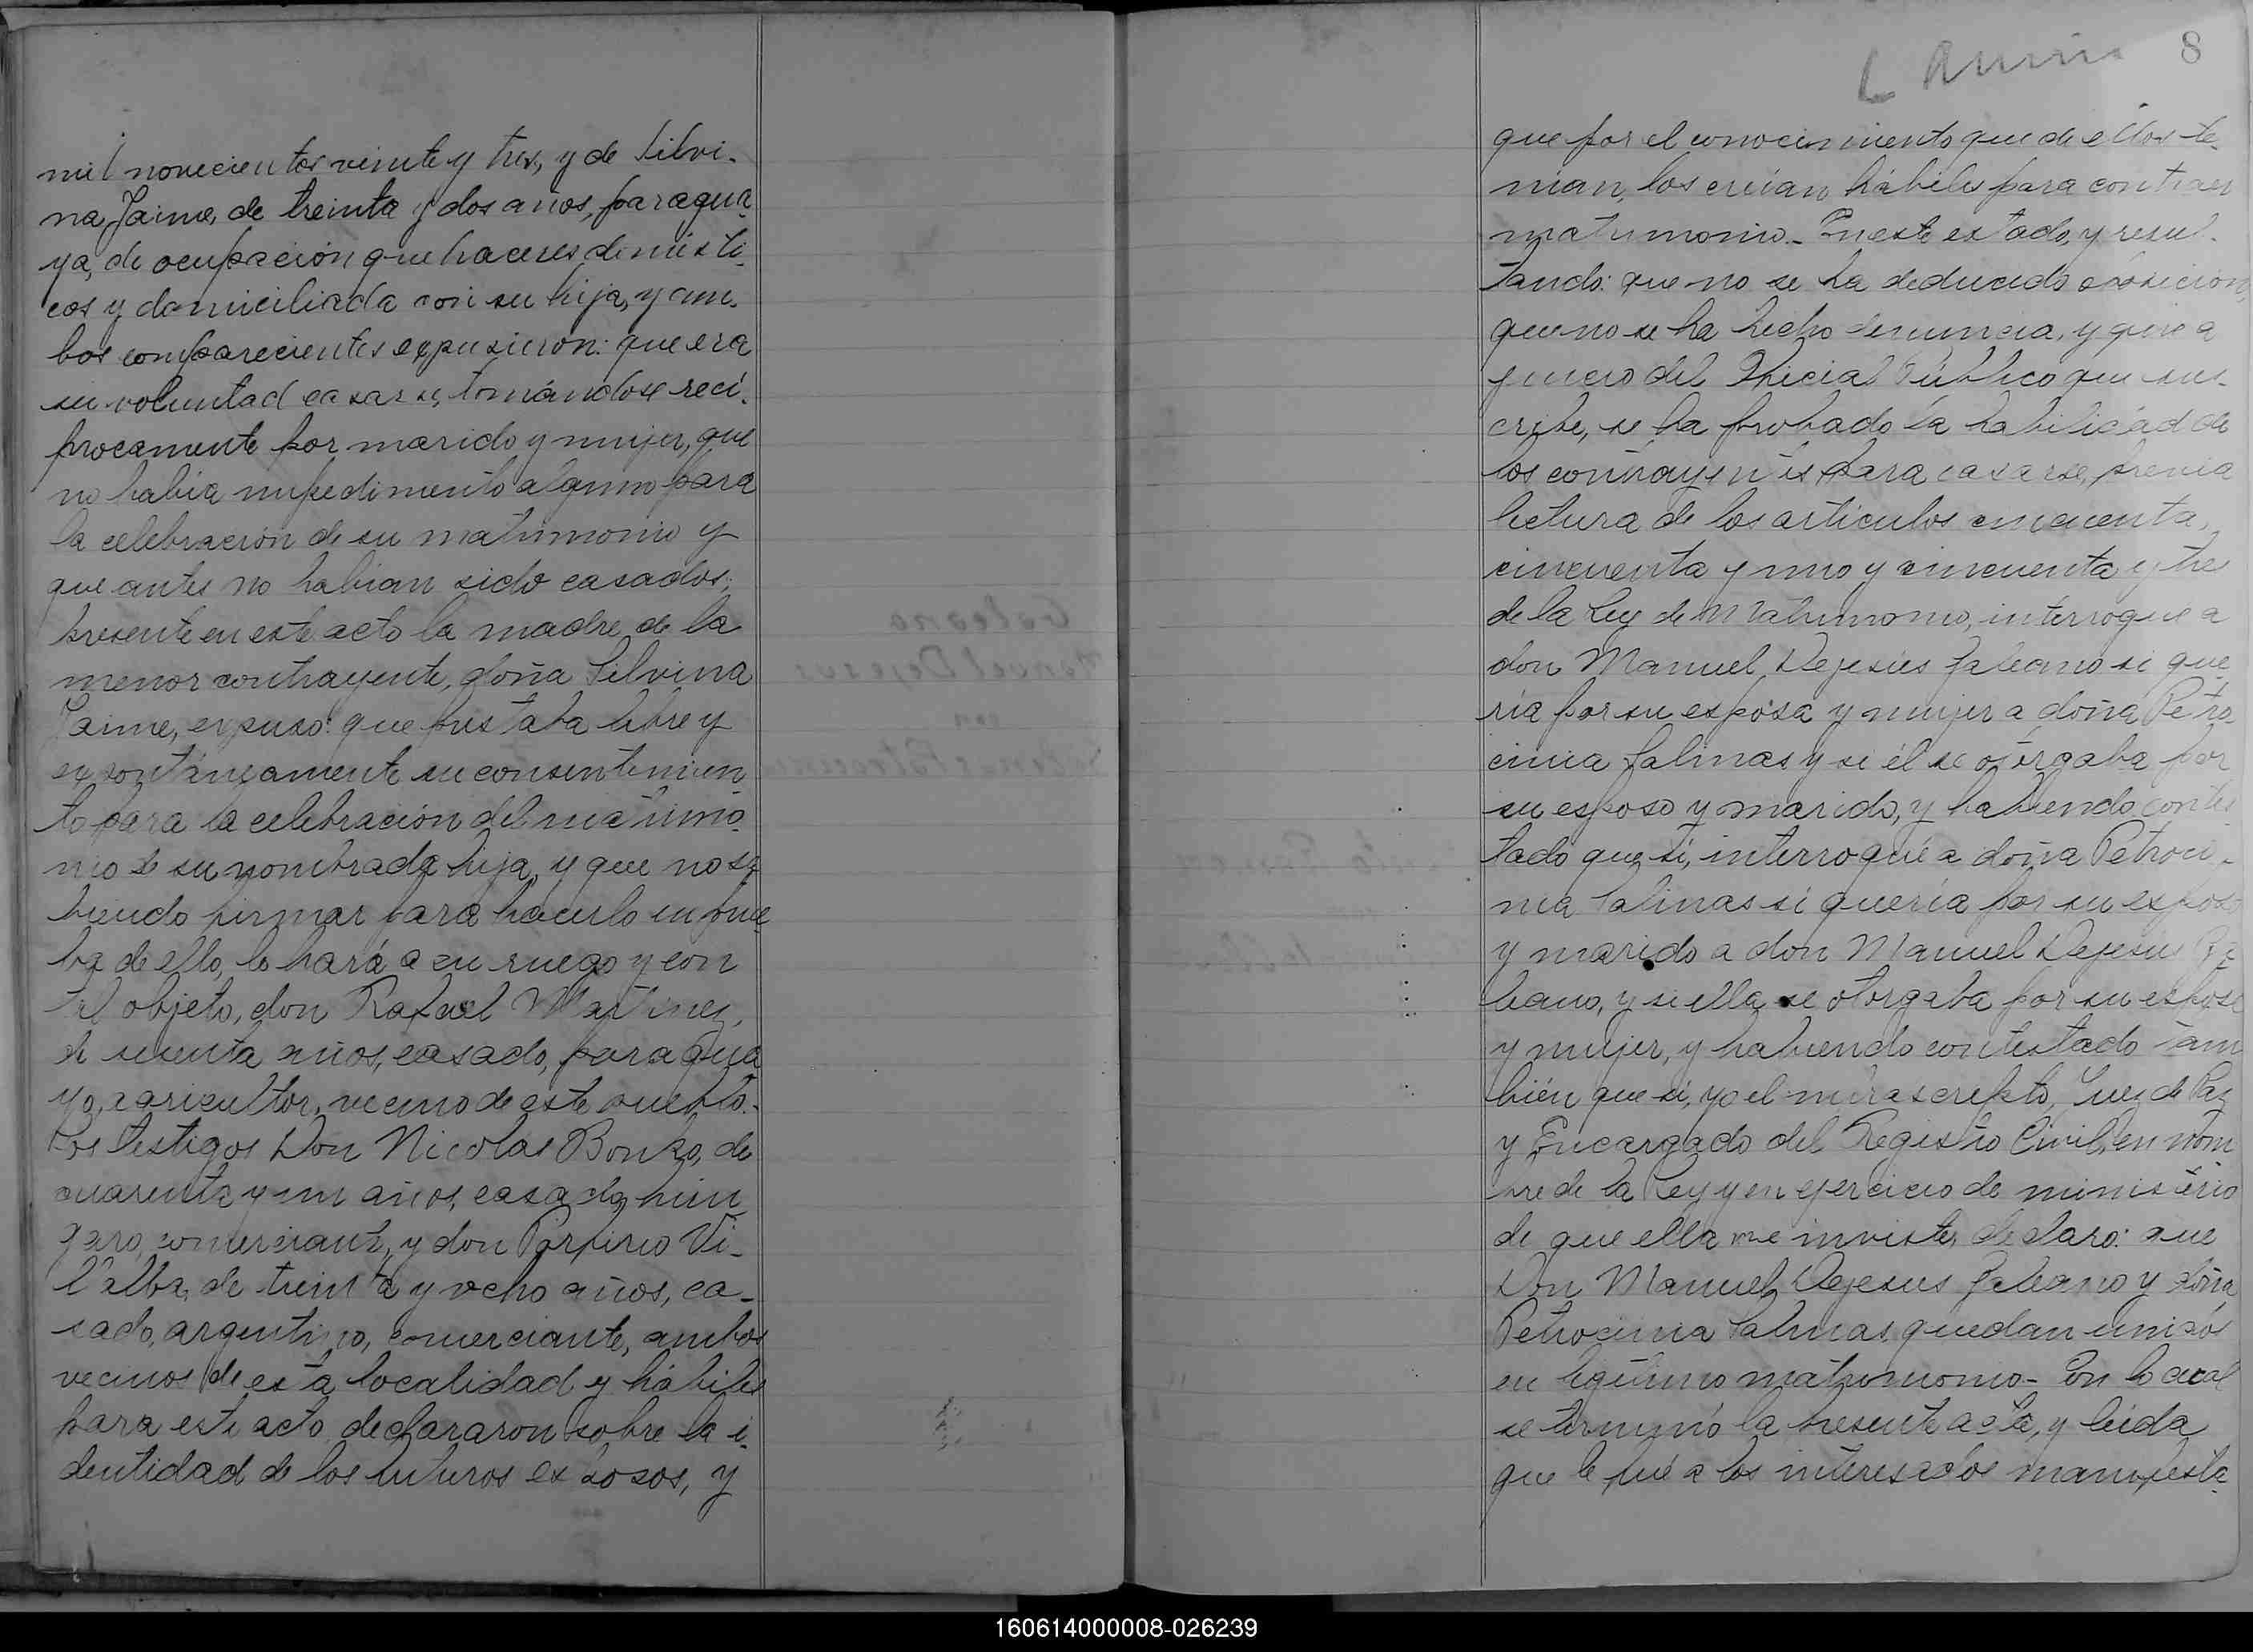 mil novecientos veinte y tres, y de Silvi-
na Jaime, de treinta y dos años, paragua-
ya, de ocupación quehaceres domésti-
cos y domiciliada con su hija, y am-
bos comparecientes expusieron: que era
su voluntad casarse, tomándose reci-
procamente por marido y mujer, que
no había impedimento alguno para
la celebración de su matrimonio y
que antes no habían sido casados;
presente en este acto la madre de la
menor contrayente, doña Silvina
Jaime, expuso: que prestaba libre y
expontáneamente su consentimien-
to para la celebración del matrimo-
nio de su nombrada hija, y que no sa-
biendo firmar para hacerlo en prue-
ba de ello, lo hará a su ruego y con
tal objeto, don Rafael Martinez,
de sesenta años, casado, paragua-
yo, agricultor, vecino de este pueblo.-
Los testigos Don Nicolas Bonzo, de
cuarenta y un años, casado, hún-
garo, comerciante, y don Porfirio Vi-
llalba, de treinta y ocho años, ca-
sado, argentino, comerciante, ambos
vecinos de esta localidad y hábiles
para este acto declararon sobre la i-
dentidad de los futuros esposos, y
8
que por el conocimiento que de ellos te-
nían, los creían hábiles para contraer
matrimonio.- En este estado, y resul-
tando: que no se ha deducido oposicion,
que no se ha hecho denuncia, y que a
juicio del Oficial Público que sus-
cribe, se ha probado la habilidad de
los contrayentes para casarse, previa
lectura de los artículos cincuenta,
cincuenta y uno y cincuenta y tres
de la Ley de Matrimonio, interrogué a
don Manuel Dejesús Galeano si que-
ría por su esposa y mujer a doña Petro-
cinia Salinas y si él se otorgaba por
su esposo y marido, y habiendo contes-
tado que sí, interrogué a doña Petroci-
nia Salinas si quería por su esposo
y marido a don Manuel Dejesús Ga-
leano, y si ella se otorgaba por su esposa
y mujer, y habiendo contestado tam-
bién que sí, yo el infrascripto, Juez de Paz
y Encargado del Registro Civil, en nom-
bre de la Ley y en ejercicio de ministerio
de que ella me inviste, declaro: que
Don Manuel Dejesus Galeano y doña
Petrocinia Salinas, quedan unidos
en legítimo matrimonio.- Con lo cual
se terminó la presente acta, y leida
que le fué a los interesados manifesta-
160614000008-026239